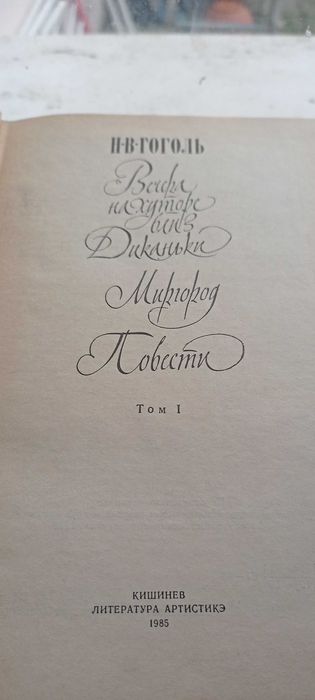 Н·В·ГОГОЛЬ
Вечера
на хуторе
близ
Диканьки
Миргород
Повести
Том I
КИШИНЕВ
ЛИТЕРАТУРА АРТИСТИКЭ
1985